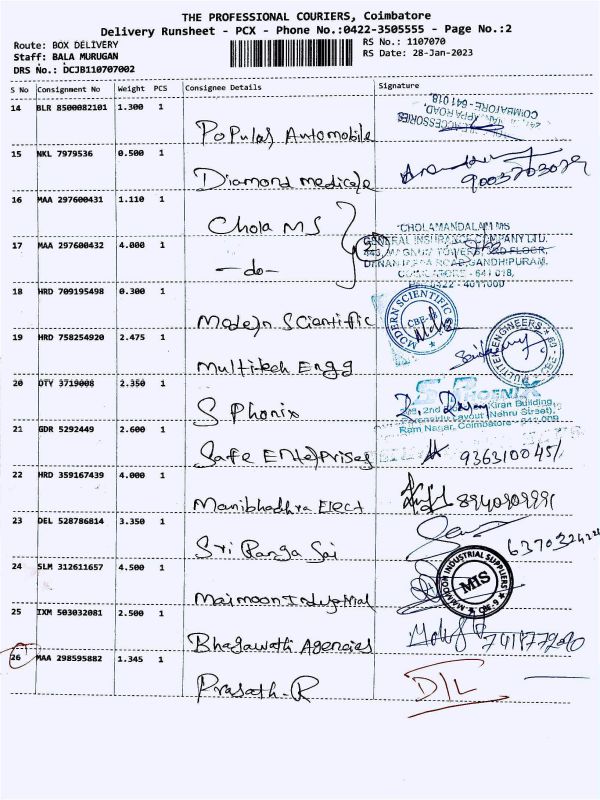 THE PROFESSIONAL COURIERS, Coimbatore
Delivery Runsheet - PCX - Phone No.:0422-3505555 - Page No.:2
Route: BOX DELIVERY
RS No.: 1107070
Staff: BALA MURUGAN
RS Date: 28-Jan-2023
DRS No.: DCJB110707002
S No Consignment No Weight PCS Consignee Details Signature
14 BLR 8500082101 1.300 1
COIMBATORE - 641 018,
ACCESSORIES
Popular Automobile
15 NKL 7979536 0.500 1
Diamond medicale
16 MAA 297600431 1.110 1
Chola MS
CHOLAMANDALAM MS
GENERAL INSURANCE COMPANY LTD.
17 MAA 297600432 4.000 1
-do-
COIMBATORE - 641 018,
18 HRD 709195498 0.300 1
Modern Scientific
MODERN SCIENTIFIC
CBE
19 HRD 758254920 2.475 1
Multitech Engg
20 OTY 3719008 2.350 1
S Phonix
Kiran Building,
Ram Nagar, Coimbatore - 641 009
21 GDR 5292449 2.600 1
Safe Enterprises
22 HRD 359167439 4.000 1
Manibhadhra Elect
23 DEL 528786814 3.350 1
Sri Ranga Sai
24 SLM 312611657 4.500 1
Maimoon Industrial
MAIMOON INDUSTRIAL SUPPLIERS
MIS
25 IXM 503032081 2.500 1
Bhagawathi Agencies
26 MAA 298595882 1.345 1
Prasath-R
D/L